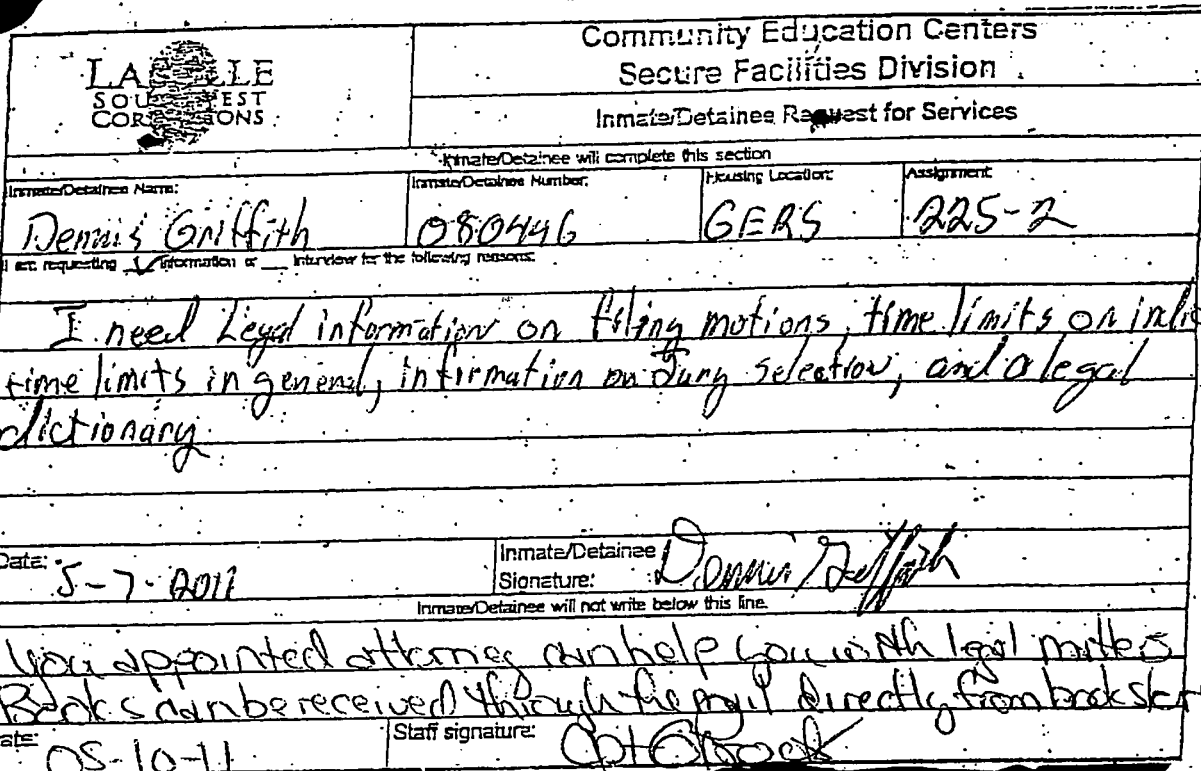 Community Education Centers
Secure Facilities Division
LA LLE
SOU WEST
COR ONS
Inmate/Detainee Request for Services
Inmate/Detainee will complete this section
Inmate/Detainee Name: Inmate/Detainee Number: Housing Location: Assignment:
Dennis Griffith 080446 GERS 225-2
I am requesting ✓ information or __ Interview for the following reasons:
I need Legal information on filing motions, time limits on indic
time limits in general, information on Jury selection, and a legal
dictionary.
Date: 5-7-2011 Inmate/Detainee Signature: Dennis Griffith
Inmate/Detainee will not write below this line.
You appointed attorney can help you with legal matters
Books can be received through the mail directly from book stor
ate: 05-10-11 Staff signature: